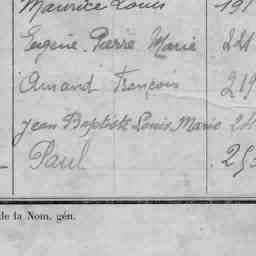 Maurice Louis 191
Eugène Pierre Marie 221
Amand François 219
Jean Baptiste Louis Marie 24
Paul 25
de la Nom. gén.